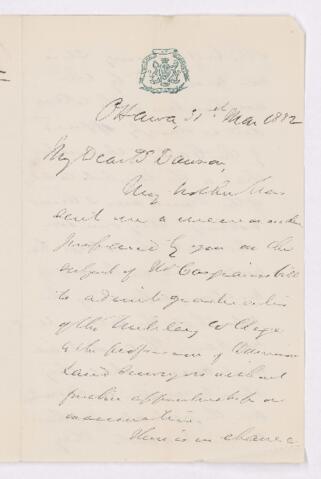 Ottawa, 31st Mar 1882
My Dear Dr Dawson,
My brother has
sent me a memorandum
prepared by you on the
subject of Mr bill
to admit graduates
of the Military College
to the profession of Dominion
Land Surveyors without
further apprenticeship or
examination.
There is no chance